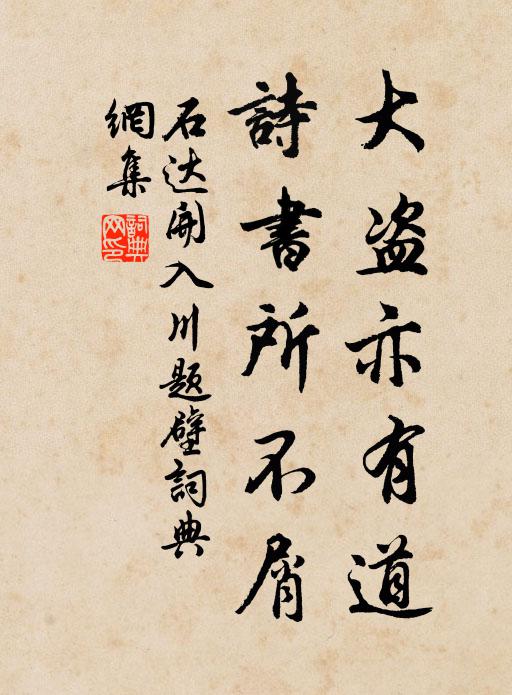 大盗亦有道
詩書所不屑
石达開入川题壁詞典
網集
詞典
网印